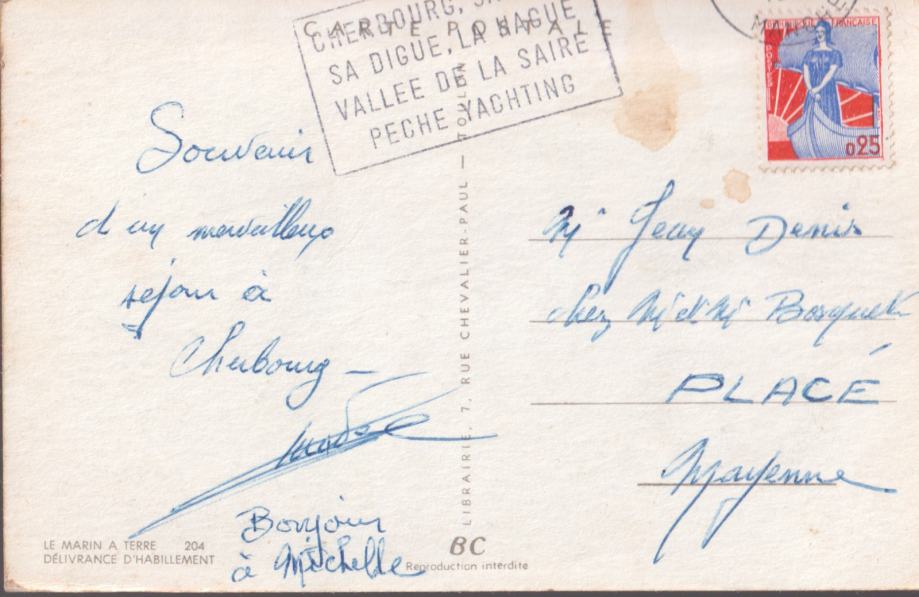 CARTE POSTALE
CHERBOURG, SA
SA DIGUE, LA HAGUE
VALLEE DE LA SAIRE
PECHE YACHTING
REPUBLIQUE FRANÇAISE
POSTES
0,25
Souvenir
d'un merveilleux
séjour à
Cherbourg —
Bonjour
à Michelle
Mr Jean Denis
chez Mr et Me Bosquet
PLACÉ
Mayenne
LIBRAIRIE, 7, RUE CHEVALIER-PAUL — TOULON
LE MARIN A TERRE 204
DÉLIVRANCE D'HABILLEMENT
BC
Reproduction interdite